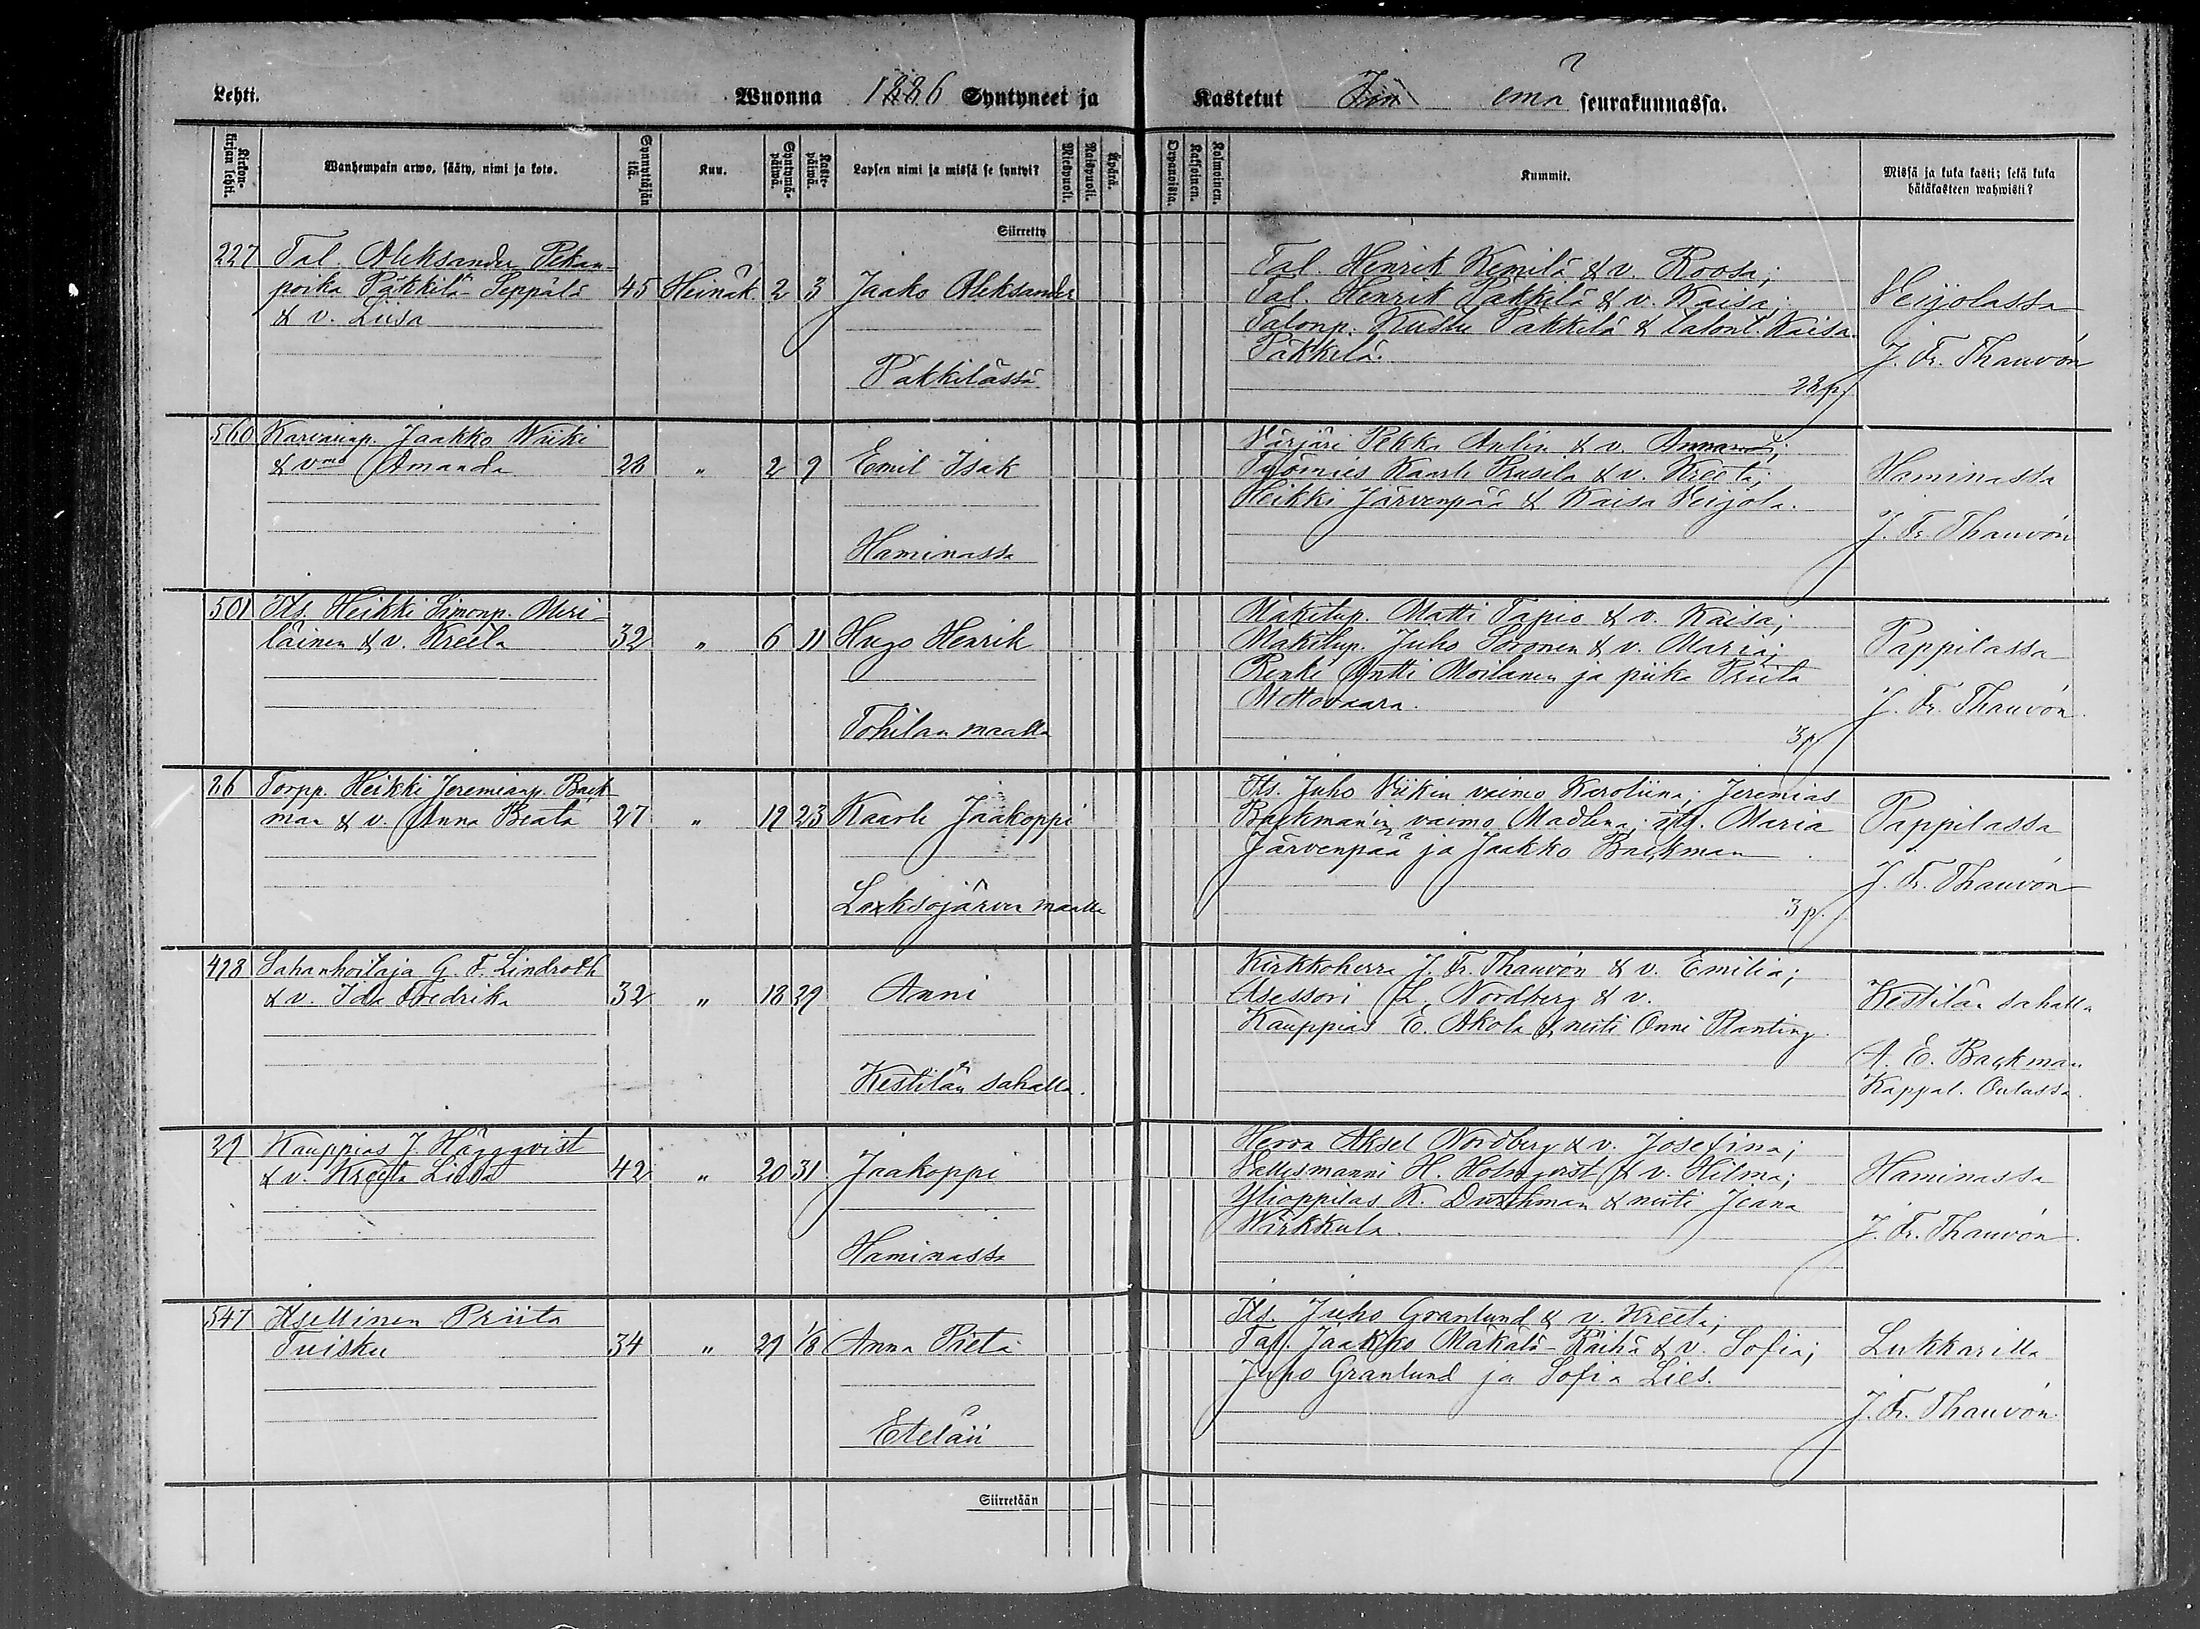 Lehti. Wuonna 1886 Syntyneet ja Kastetut Iin emä seurakunnassa.
Kirkonkirjan lehti. Wanhempain arwo, sääty, nimi ja koto. Synnyttäjän ikä. Kuu. Syntymäpäiwä. Kastepäiwä. Lapsen nimi ja missä se syntyi? Miespuoli. Naispuoli. Äpärä. Orpanoista. Kaksoinen. Kolmoinen. Kummit. Missä ja kuka kasti; sekä kuka hätäkasteen wahwisti?
Siirretty
227 Tal. Aleksander Pekan-
poika Päkkilä-Seppälä 45 Heinäk. 2 3 Jaako Aleksander
& v. Liisa
Päkkilässä
Tal. Henrik Kemilä & v. Roosa;
Tal. Henrik Päkkilä & v. Kaisa;
Talonp. Kustu Päkkilä & talont. Kaisa
Päkkilä.
28 p.
Veijolassa
J. Fr. Thauvón
560 Karvarinp. Jaakko Wiiki
& vmo Amanda 28 " 2 9 Emil Isak
Haminassa
Värjäri Pekka Anlin & v. Amanda;
Työmies Kaarle Rusila & v. Kreeta;
Heikki Järvenpää & Kaisa Veijola.
Haminassa
J. Fr. Thauvón
501 Its. Heikki Simonp. Meri-
läinen & v. Kreeta 32 " 6 11 Hugo Henrik
Tohilan maalla
Mäkitup. Matti Tapio & v. Kaisa;
Mäkitup. Juho Soronen & v. Maria;
Renki Antti Moilanen ja piika Priita
Mettovaara.
3 p.
Pappilassa
J. Fr. Thauvón.
26 Torpp. Heikki Jeremianp. Back-
man & v. Anna Beata 27 " 19 23 Kaarle Jaakoppi
Laksojärven maalla
Its. Juho Wiikin vaimo Karoliina; Jeremias
Backman'in vaimo Madlena; itts. Maria
Järvenpää ja Jaakko Backman
3 p.
Pappilassa
J. Fr. Thauvón
498 Sahanhoitaja G. F. Lindroth
& v. Ida Fredrika 32 " 18 29 Anni
Kestilän sahalla.
Kirkkoherra J. Fr. Thauvón & v. Emilia;
Asessori L. Nordberg & v.
Kauppias E. Akola & neiti Onni Planting
Kestilän sahalla
A. E. Backman
Kappal. Oulussa.
29 Kauppias J. Häggqvist
& v. Kreeta Liisa 42 " 20 31 Jaakoppi
Haminassa
Herra Aksel Nordberg & v. Josefina;
Vallesmanni H. Holmqvist & v. Hilma;
Ylioppilas K. Durchman & neiti Jeana
Wirkkula.
Haminassa
J. Fr. Thauvón.
547 Itsellinen Priita
Tuisku 34 " 29 1/8 Anna Prieta
Eteläii
Its. Juho Granlund & v. Kreeta;
Tal. Jaakko Mäkälä-Räihä & v. Sofia;
Juho Granlund ja Sofia Lies.
Lukkarilla
J. Fr. Thauvón.
Siirretään